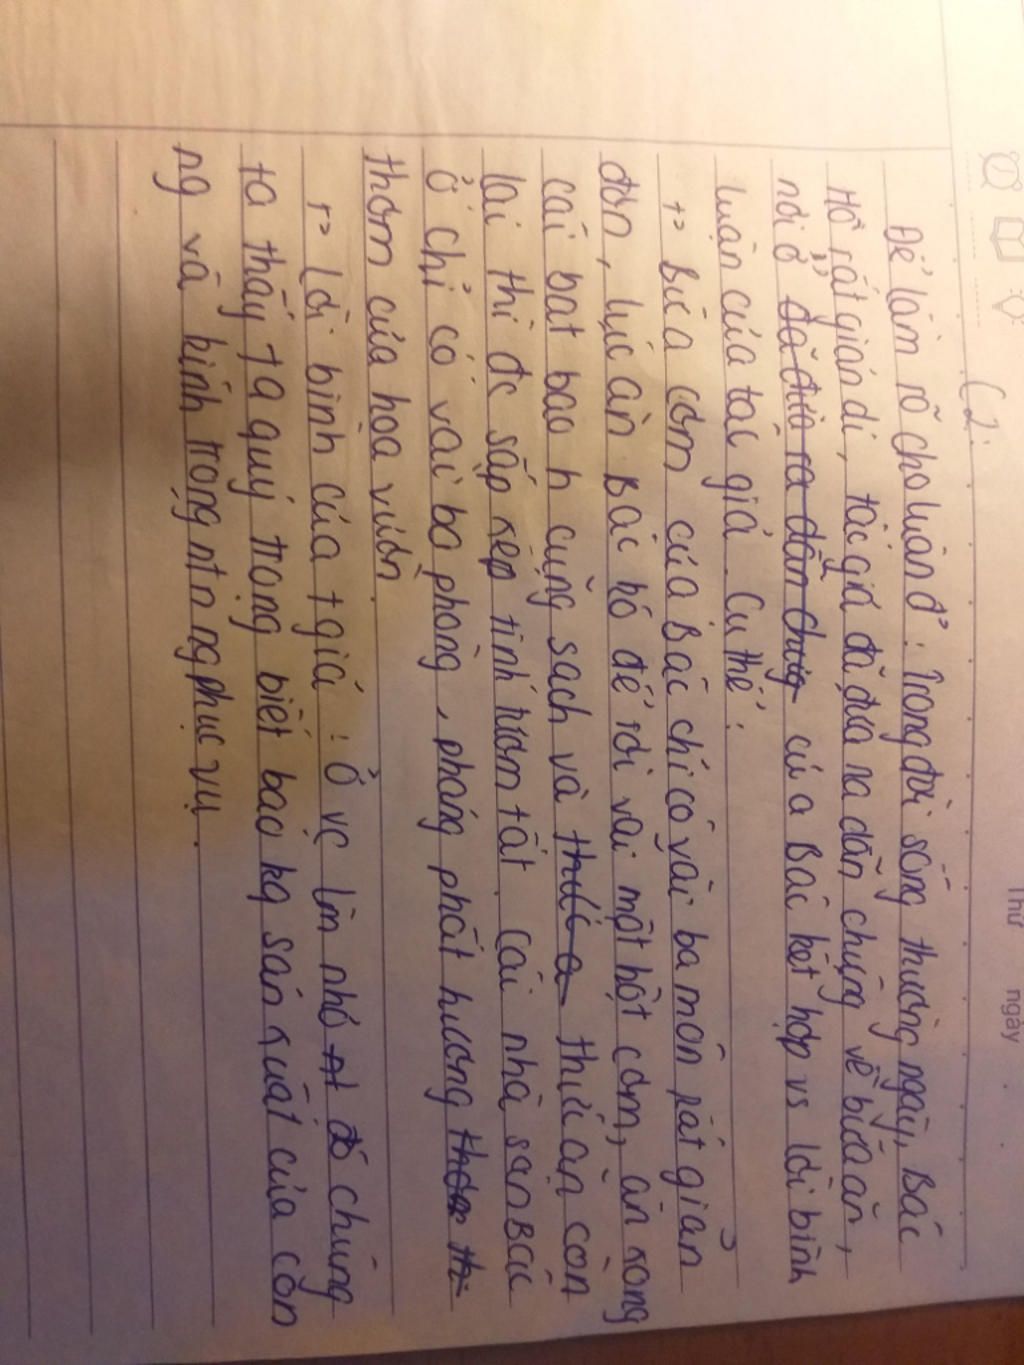 Thứ ngày
C2:
Để làm rõ cho luận đ²: Trong đời sống thường ngày, Bác
Hồ rất giản dị, tác giả đã đưa ra dẫn chứng về bữa ăn,
nơi ở đã đưa ra dẫn chứng của Bác kết hợp vs lời bình
luận của tác giả. Cụ thể:
+> Bữa cơm của Bác chỉ có vài ba món rất giản
đơn, lúc ăn Bác hó để rơi vãi một hột cơm, ăn xong
cái bát bao h cũng sạch và thức a thức ăn còn
lại thì đc sắp xếp tinh tươm tất. Cái nhà sàn Bác
ở chỉ có vài ba phòng, phảng phất hương thơm
thơm của hoa vườn.
+> Lời bình của t giả: Ở vc làm nhỏ đó chúng
ta thấy ta quý trọng biết bao kq sản xuất của con
ng và kính trọng ntn ng phục vụ.